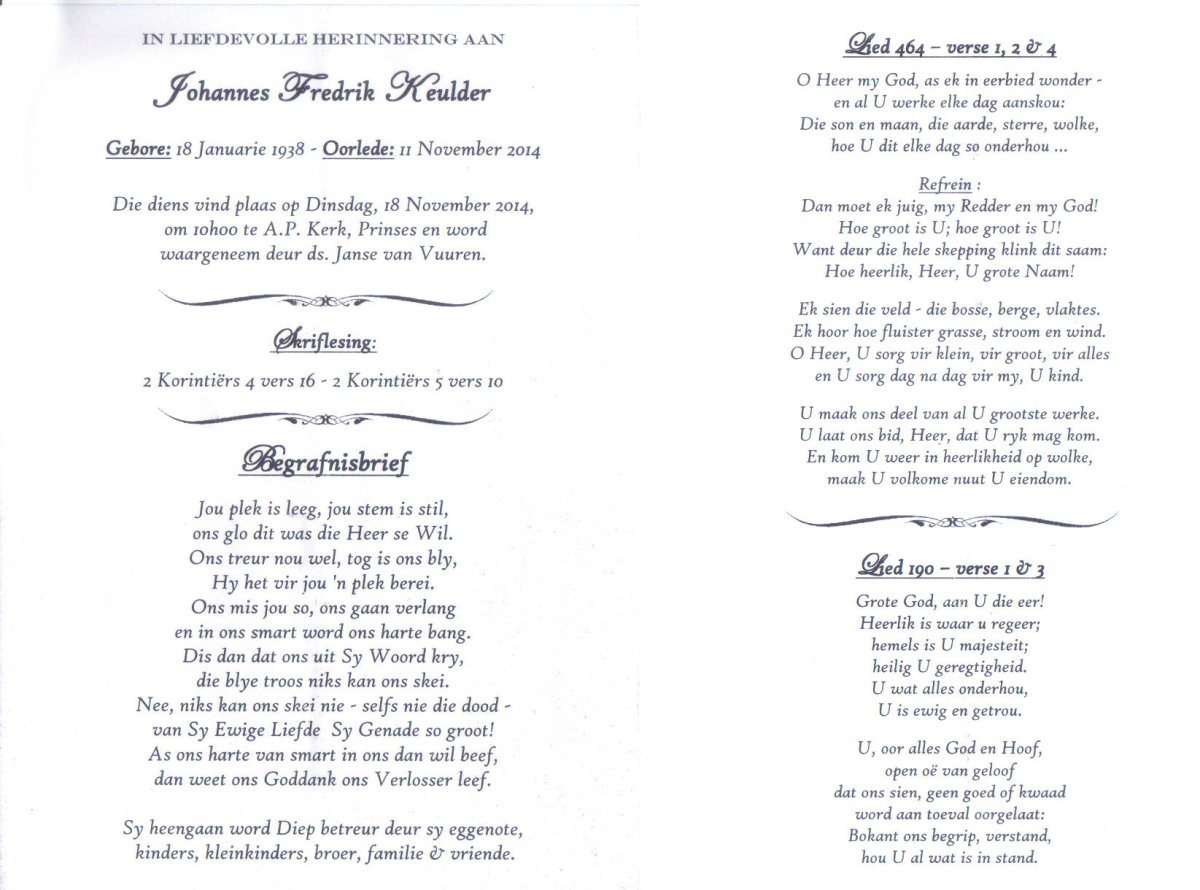 IN LIEFDEVOLLE HERINNERING AAN
Johannes Fredrik Keulder
Gebore: 18 Januarie 1938 - Oorlede: 11 November 2014
Die diens vind plaas op Dinsdag, 18 November 2014,
om 10h00 te A.P. Kerk, Prinses en word
waargeneem deur ds. Janse van Vuuren.
Skriflesing:
2 Korintiërs 4 vers 16 - 2 Korintiërs 5 vers 10
Begrafnisbrief
Jou plek is leeg, jou stem is stil,
ons glo dit was die Heer se Wil.
Ons treur nou wel, tog is ons bly,
Hy het vir jou 'n plek berei.
Ons mis jou so, ons gaan verlang
en in ons smart word ons harte bang.
Dis dan dat ons uit Sy Woord kry,
die blye troos niks kan ons skei.
Nee, niks kan ons skei nie - selfs nie die dood -
van Sy Ewige Liefde Sy Genade so groot!
As ons harte van smart in ons dan wil beef,
dan weet ons Goddank ons Verlosser leef.
Sy heengaan word Diep betreur deur sy eggenote,
kinders, kleinkinders, broer, familie & vriende.
Lied 464 – verse 1, 2 & 4
O Heer my God, as ek in eerbied wonder -
en al U werke elke dag aanskou:
Die son en maan, die aarde, sterre, wolke,
hoe U dit elke dag so onderhou ...
Refrein :
Dan moet ek juig, my Redder en my God!
Hoe groot is U; hoe groot is U!
Want deur die hele skepping klink dit saam:
Hoe heerlik, Heer, U grote Naam!
Ek sien die veld - die bosse, berge, vlaktes.
Ek hoor hoe fluister grasse, stroom en wind.
O Heer, U sorg vir klein, vir groot, vir alles
en U sorg dag na dag vir my, U kind.
U maak ons deel van al U grootste werke.
U laat ons bid, Heer, dat U ryk mag kom.
En kom U weer in heerlikheid op wolke,
maak U volkome nuut U eiendom.
Lied 190 – verse 1 & 3
Grote God, aan U die eer!
Heerlik is waar u regeer;
hemels is U majesteit;
heilig U geregtigheid.
U wat alles onderhou,
U is ewig en getrou.
U, oor alles God en Hoof,
open oë van geloof
dat ons sien, geen goed of kwaad
word aan toeval oorgelaat:
Bokant ons begrip, verstand,
hou U al wat is in stand.